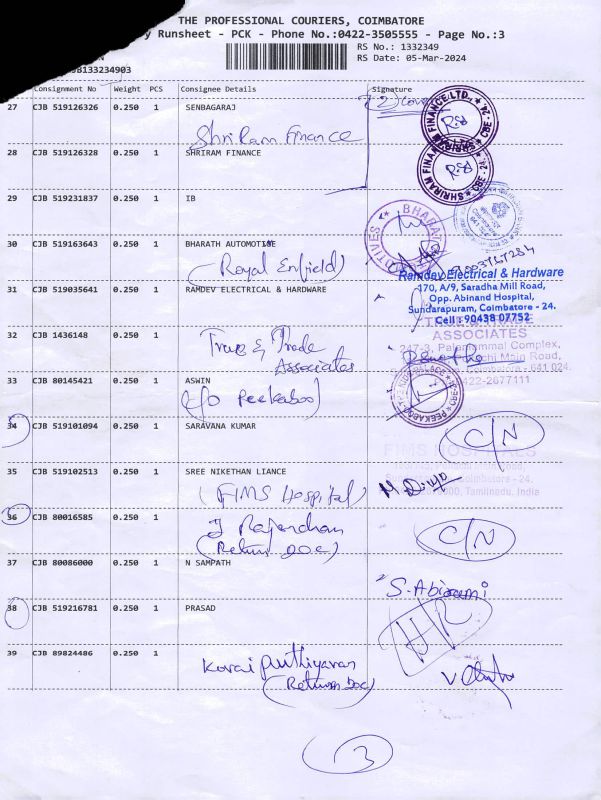 THE PROFESSIONAL COURIERS, COIMBATORE
Runsheet - PCK - Phone No.:0422-3505555 - Page No.:3
RS No.: 1332349
RS Date: 05-Mar-2024
133234903
Consignment No Weight PCS Consignee Details Signature
27 CJB 519126326 0.250 1 SENBAGARAJ
Shriram Finance
28 CJB 519126328 0.250 1 SHRIRAM FINANCE
29 CJB 519231837 0.250 1 IB
30 CJB 519163643 0.250 1 BHARATH AUTOMOTIVE
(Royal Enfield)
31 CJB 519035641 0.250 1 RAMDEV ELECTRICAL & HARDWARE
Ramdev Electrical & Hardware
170, A/9, Saradha Mill Road,
Opp. Abinand Hospital,
Sundarapuram, Coimbatore - 24.
Cell : 90438 07752
32 CJB 1436148 0.250 1 True & Trade
Associates
ASSOCIATES
247-3, Palaniammal Complex,
Main Road,
Coimbatore - 641 024.
0422-2677111
33 CJB 80145421 0.250 1 ASWIN
C/o Peekaboo
34 CJB 519101094 0.250 1 SARAVANA KUMAR
C/N
FIMS HOSPITALS
35 CJB 519102513 0.250 1 SREE NIKETHAN LIANCE
(FIMS Hospital)
Coimbatore - 24.
Tamilnadu, India
36 CJB 80016585 0.250 1 J Rajendran
(Return Doc)
C/N
37 CJB 80086000 0.250 1 N SAMPATH
S. Abirami
38 CJB 519216781 0.250 1 PRASAD
39 CJB 89824486 0.250 1 Korai Puthiyavan
(Return Doc)
3